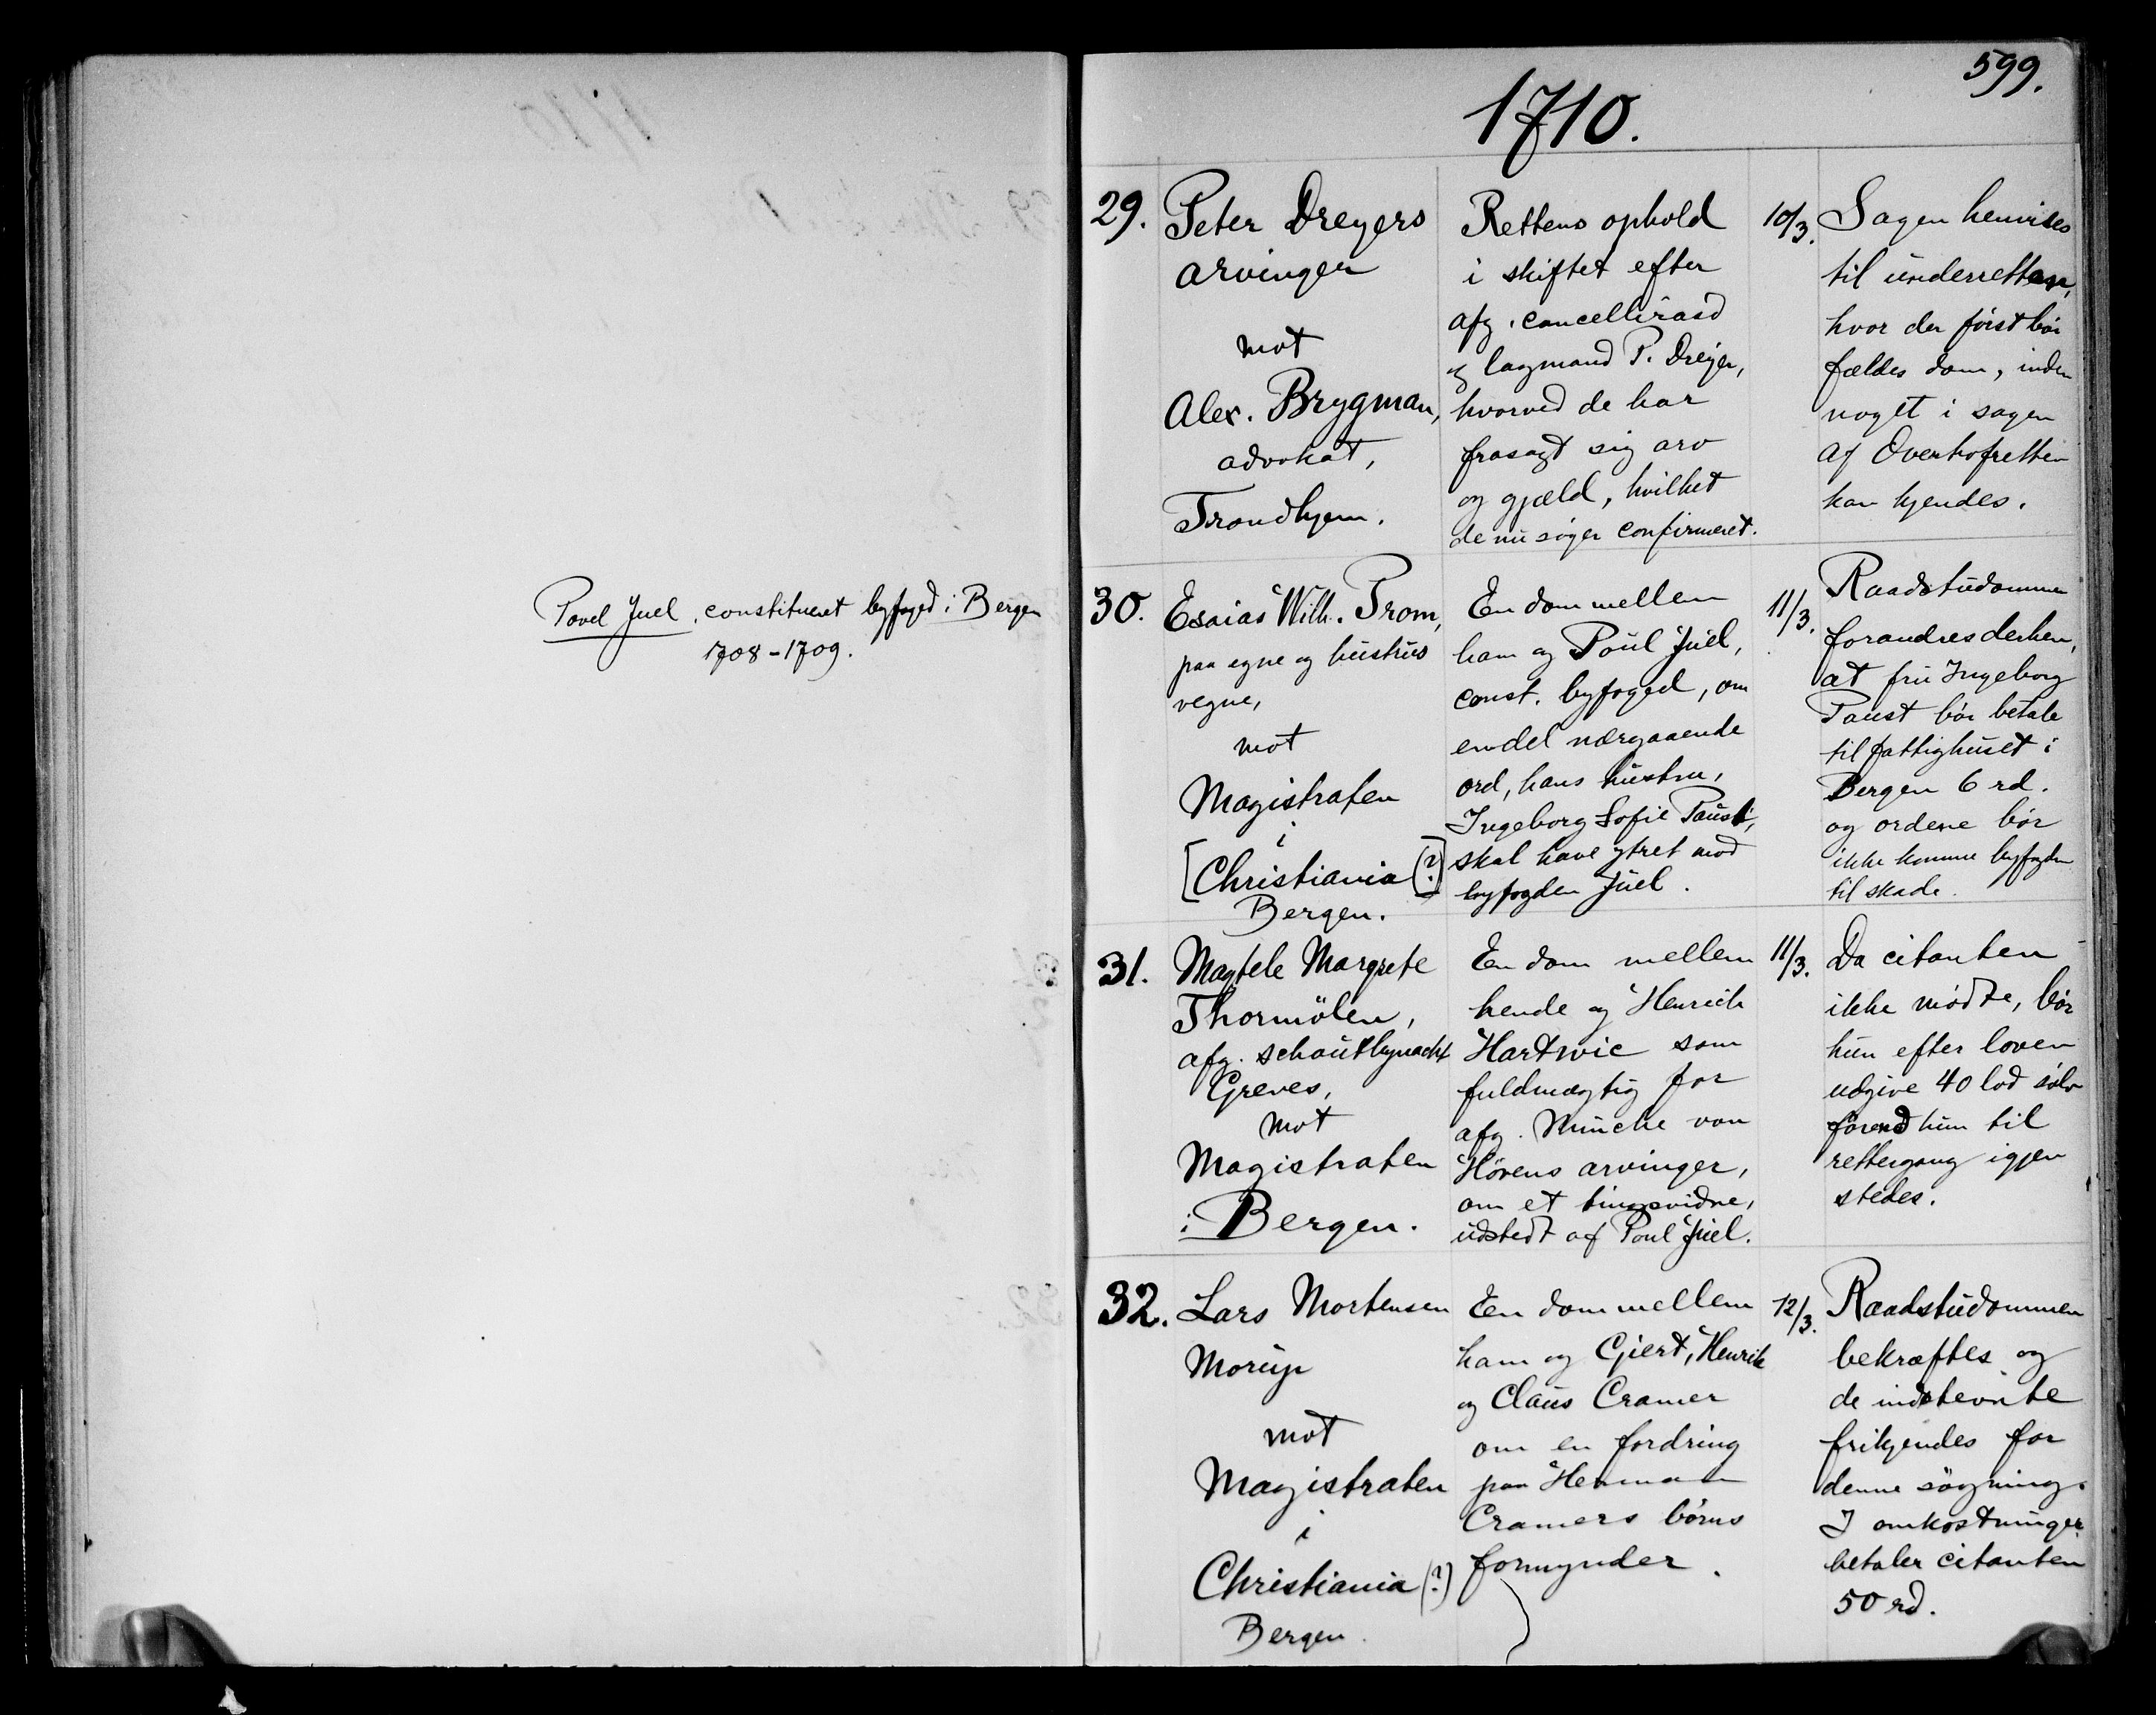 Povel Juel, constitueret byfoged i Bergen
1708-1709.
599.
1710.
29.
Peter Dreyers
arvinger
mot
Alex. Brygman,
advokat,
Trondhjem.
Rettens ophold
i skiftet efter
afg. cancelliraad
og lagmand P. Dreyer,
hvorved de har
frasagt sig arv
og gjæld, hvilket
de nu søger confirmeret.
10/3.
Sagen henvises
til underretten,
hvor der først bør
fældes dom, inden
noget i sagen
af Overhofretten
kan kjendes.
30.
Esaias Wilh. Prom,
paa egne og hustrus
vegne,
mot
Magistraten
i
[Christiania (?)]
Bergen.
En dom mellem
ham og Poul Juel,
const. byfoged, om
endel nærgaaende
ord, hans hustru,
Ingeborg Sofie Paust,
skal have ytret mod
byfogden Juel.
11/3.
Raadstudommen
forandres derhen,
at fru Ingeborg
Paust bør betale
til fattighuset i
Bergen 6 rd.
og ordene bør
ikke komme byfogden
til skade.
31.
Magtele Margrete
Thormölen,
afg. schoutbynacht
Greves,
mot
Magistraten
i Bergen.
En dom mellem
hende og Henrich
Hartwic som
fuldmægtig for
afg. Münche von
Hövens arvinger,
om et tingsvidne,
udstedt af Poul Juel.
11/3.
Da citanten
ikke mødte, bør
hun efter loven
udgive 40 lod sølv
førend hun til
rettergang igjen
stedes.
32.
Lars Mortensen
Morup
mot
Magistraten
i
Christiania (?)
Bergen.
En dom mellem
ham og Gjert, Henrik
og Claus Cramer
om en fordring
paa Herman
Cramers børns
formynder.
12/3.
Raadstudommen
bekræftes og
de indstevnte
frikjendes for
denne søgning.
I omkostninger
betaler citanten
50 rd.